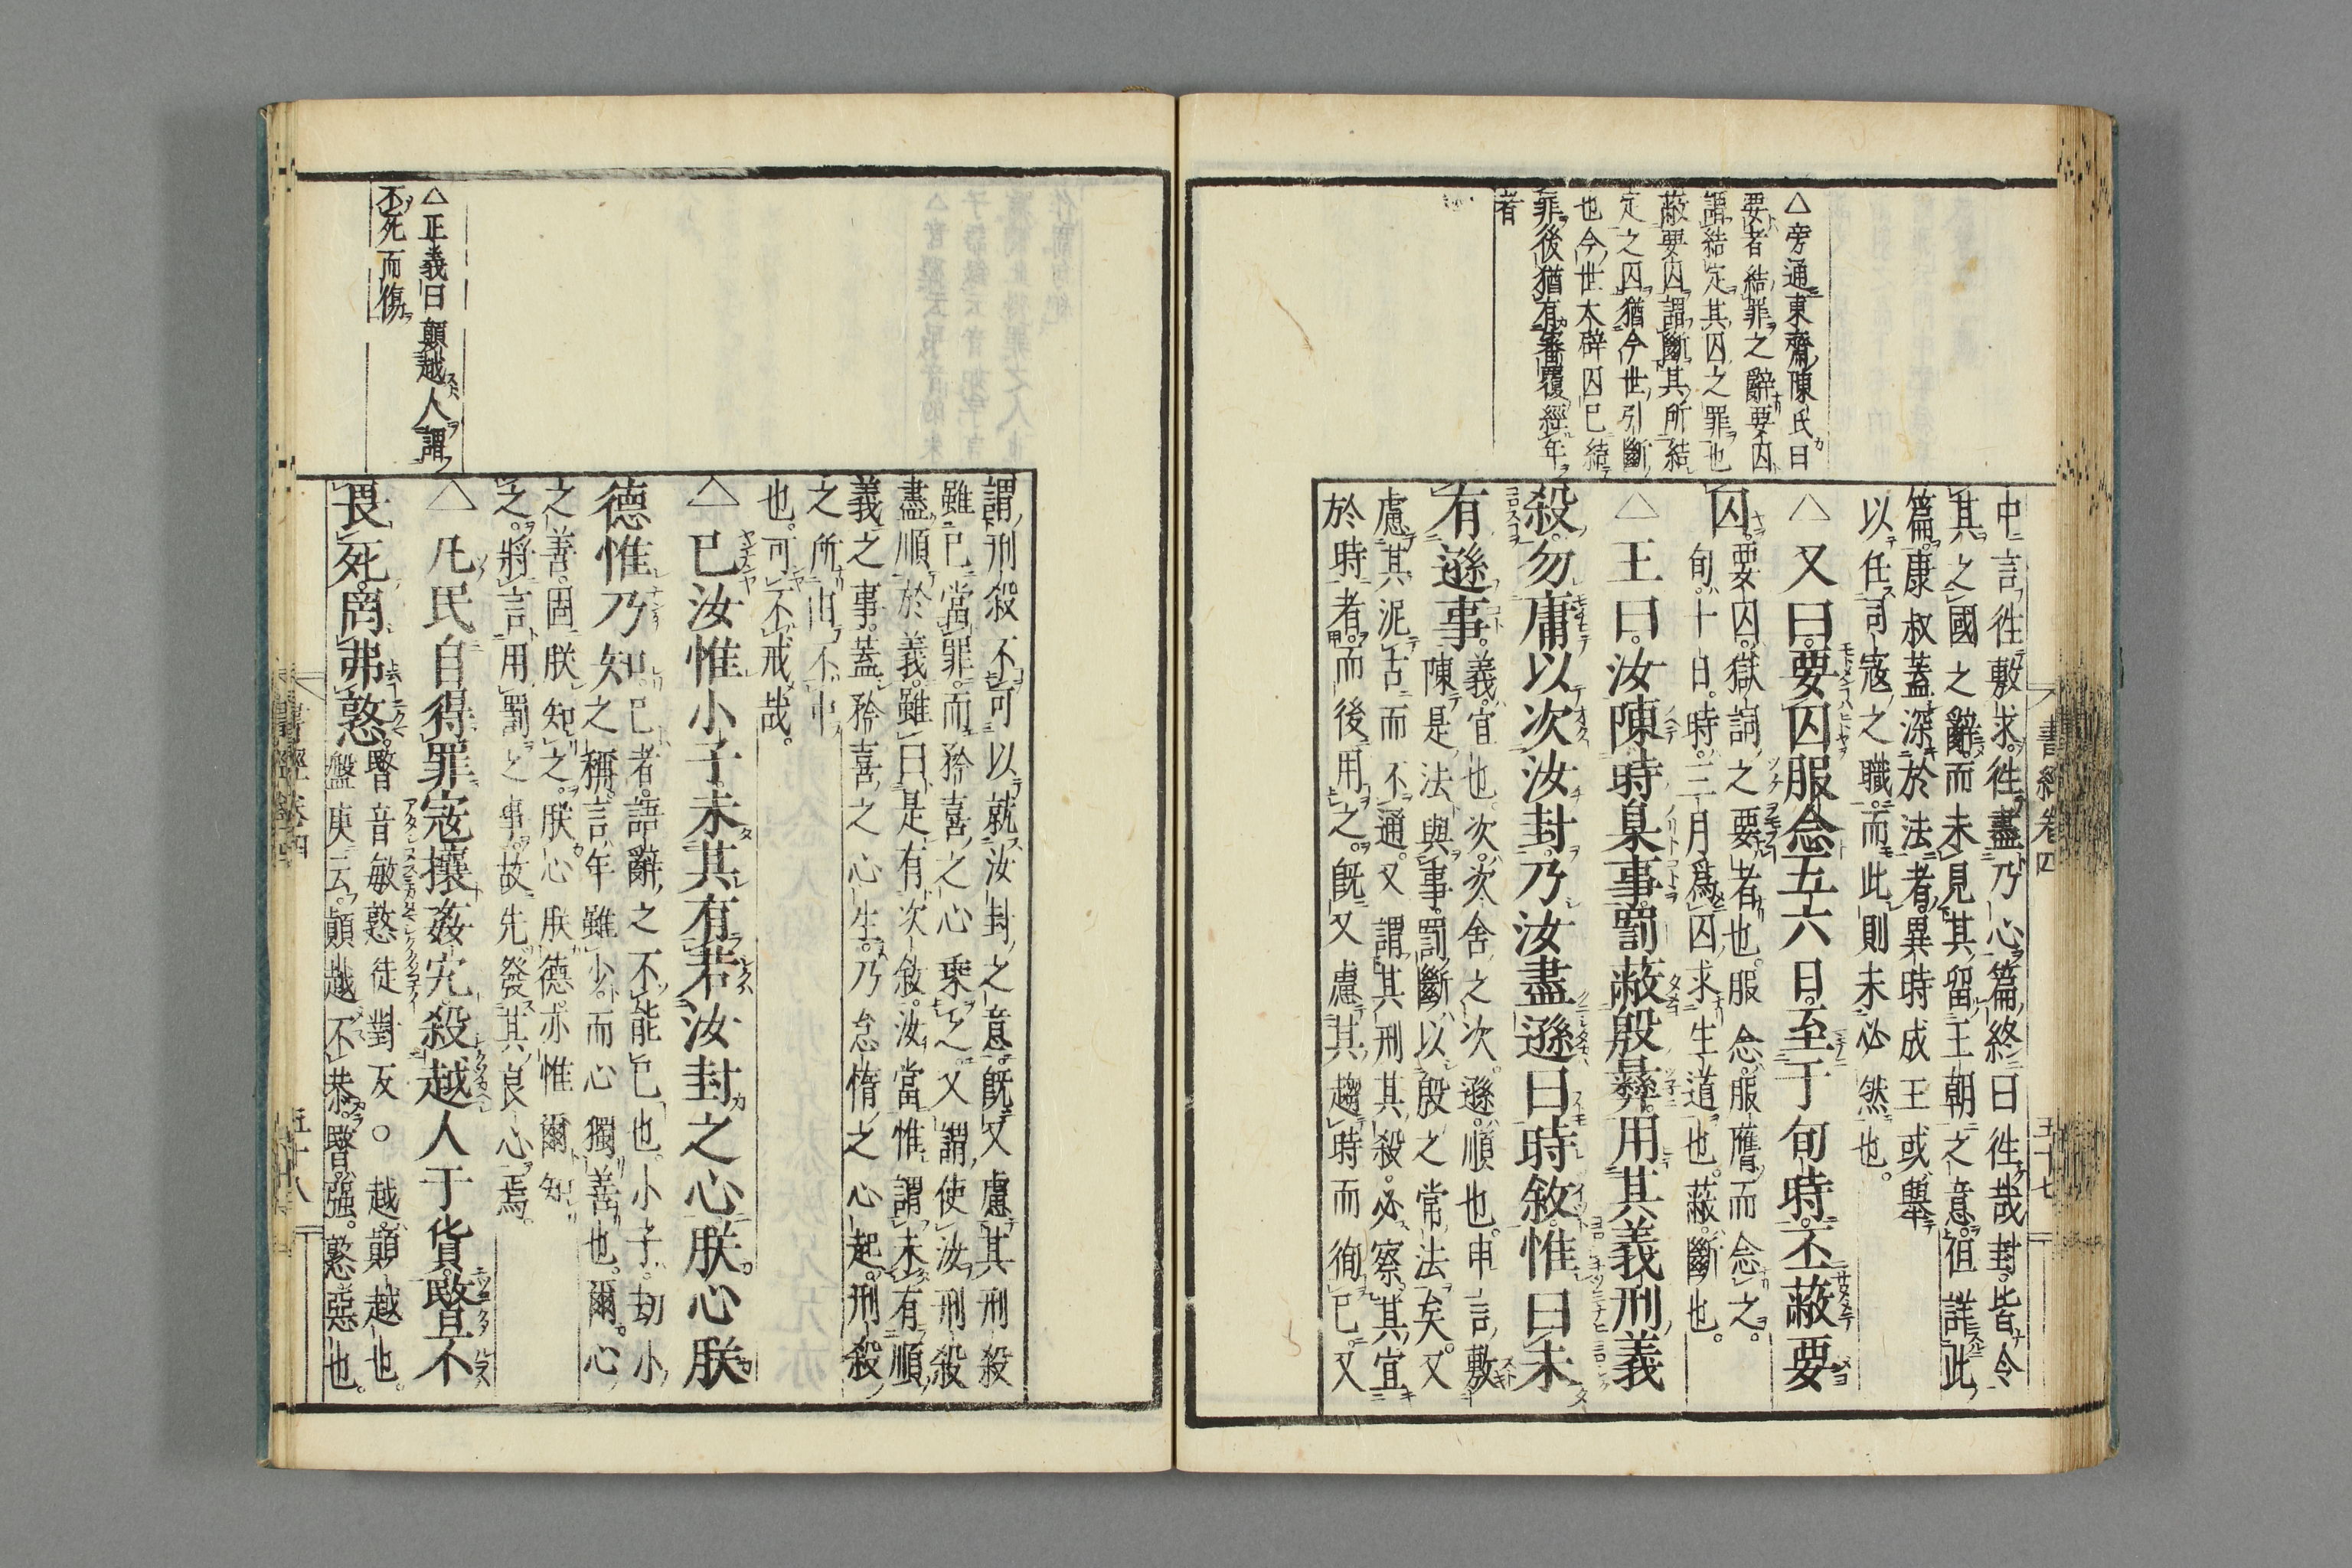 △旁通東齋陳氏曰
要者結罪之辭要囚
謂結定其囚之罪也
蔽要囚謂斷其所結
定之囚猶今世引斷
也今世大辟囚已結
罪後猶有審覆經年
者
書經卷四
五十七
中言往敷求往盡乃心篇終曰往哉封皆令
其之國之辭而未見其留王朝之意但詳此
篇康叔蓋深於法者異時成王或舉
以任司寇之職而此則未必然也
△又曰要囚服念五六日至于旬時丕蔽要
囚要囚獄詞之要者也服念服膺而念之
旬十日時三月爲囚求生道也蔽斷也
△王曰汝陳時臬事罰蔽殷彝用其義刑義
殺勿庸以次汝封乃汝盡遜曰時敘惟曰未
有遜事義宜也次次舍之次遜順也申言敷
陳是法與事罰斷以殷之常法矣又
慮其泥古而不通又謂其刑其殺必察其宜
於時者而後用之旣又慮其趨時而徇已又
謂刑殺不可以就汝封之意旣又慮其刑殺
雖已當罪而矜喜之心乘之又謂使汝刑殺
盡順於義雖曰是有次敘汝當惟謂未有順
義之事蓋矜喜之心生乃怠惰之心起刑殺
之所由不中
也可不戒哉
△已汝惟小子未其有若汝封之心朕心朕
德惟乃知已者語辭之不能已也小子幼小
之稱言年雖少而心獨善也爾心
之善固朕知之朕心朕德亦惟爾知
之將言用罰之事故先發其良心焉
△凡民自得罪寇攘姦宄殺越人于貨暋不
畏死罔弗憝暋音敏憝徒對反○越顛越也
盤庚云顛越不恭暋强憝惡也
△正義曰顛越人謂
不死而傷
書經卷四
五十八